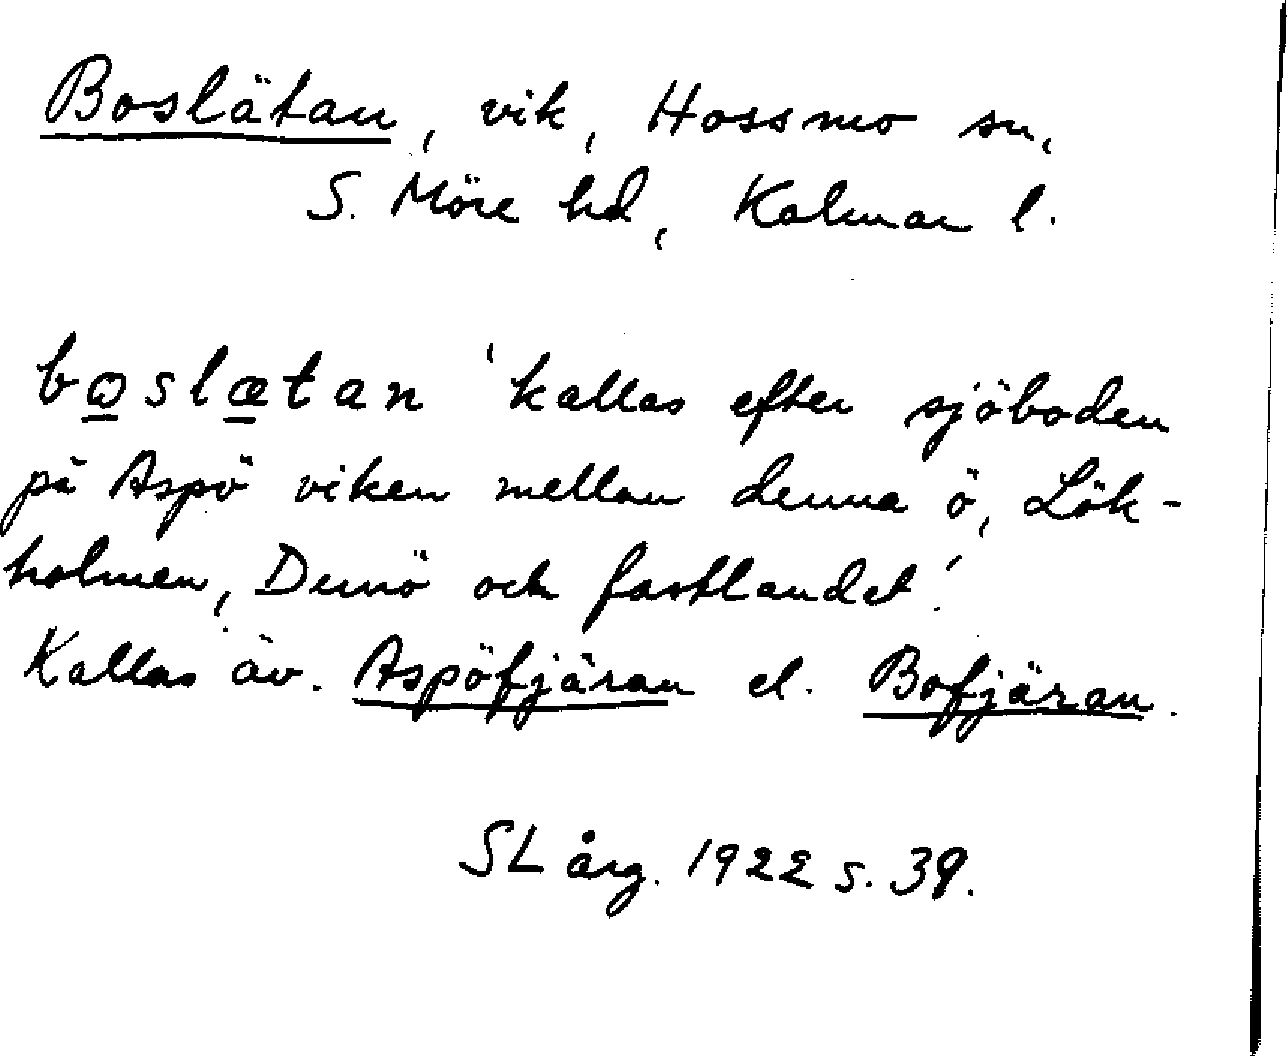 Boslätan, vik, Hossmo sn,
S. Möre hd, Kalmar l.
bωslætan 'kallas efter sjöboden
på Aspö viken mellan denna ö, Lök-
holmen, Dunö och fastlandet'.
Kallas äv. Aspöfjäran el. Bofjäran.
SL årg. 1922 s. 39.